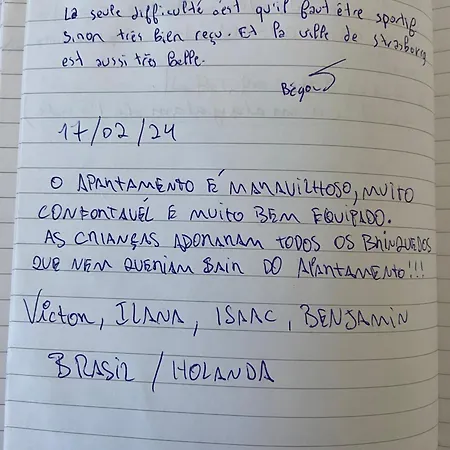 La seule difficulté c'est qu'il faut être sportif
sinon très bien reçu. Et la ville de Strasbourg
est aussi très belle.
17/02/24
O APARTAMENTO É MARAVILHOSO, MUITO
CONFORTAVÉL E MUITO BEM EQUIPADO.
AS CRIANÇAS ADORARAM TODOS OS BRINQUEDOS
QUE NEM QUERIAM SAIR DO APARTAMENTO!!!
VICTOR, ILANA, ISAAC, BENJAMIN
BRASIL / HOLANDA